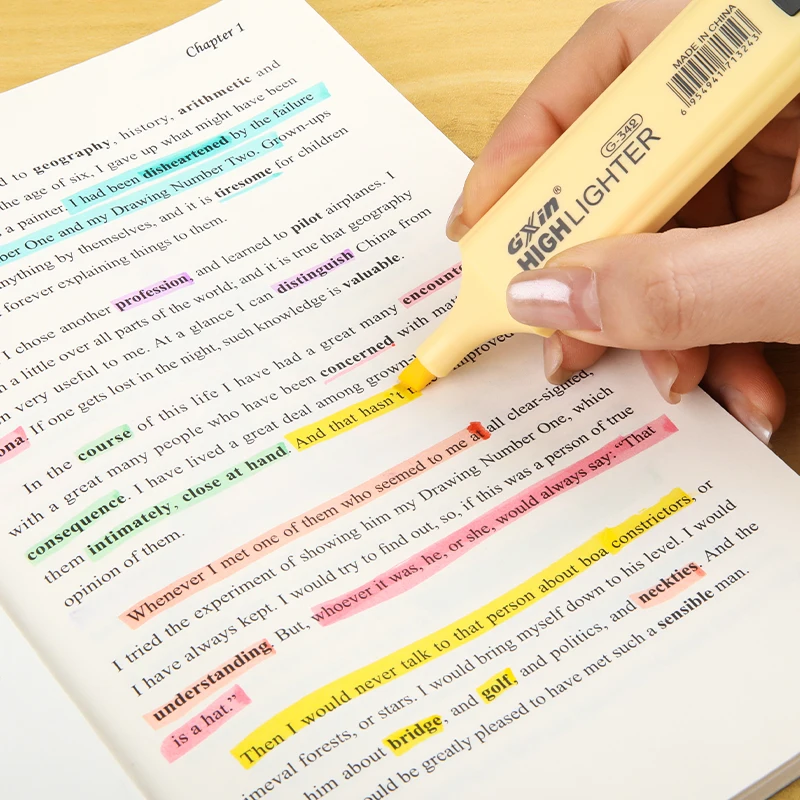 Chapter 1
d to geography, history, arithmetic and
the age of six, I gave up what might have been
a painter. I had been disheartened by the failure
ber One and my Drawing Number Two. Grown-ups
nything by themselves, and it is tiresome for children
forever explaining things to them.
I chose another profession, and learned to pilot airplanes. I
n a little over all parts of the world; and it is true that geography
n very useful to me. At a glance I can distinguish China from
ona. If one gets lost in the night, such knowledge is valuable.
In the course of this life I have had a great many encount
with a great many people who have been concerned with mat
consequence. I have lived a great deal among grown-
them intimately, close at hand. And that hasn't improved
opinion of them.
Whenever I met one of them who seemed to me at all clear-sighted,
I tried the experiment of showing him my Drawing Number One, which
I have always kept. I would try to find out, so, if this was a person of true
understanding. But, whoever it was, he, or she, would always say: "That
is a hat."
Then I would never talk to that person about boa constrictors, or
imeval forests, or stars. I would bring myself down to his level. I would
him about bridge, and golf, and politics, and neckties. And the
ould be greatly pleased to have met such a sensible man.
GXin®
HIGHLIGHTER
G-342
MADE IN CHINA
6 954941 713243